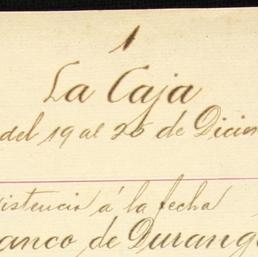 1
La Caja
del 19 al 26 de Dicie
istencia á la fecha
anco de Durang